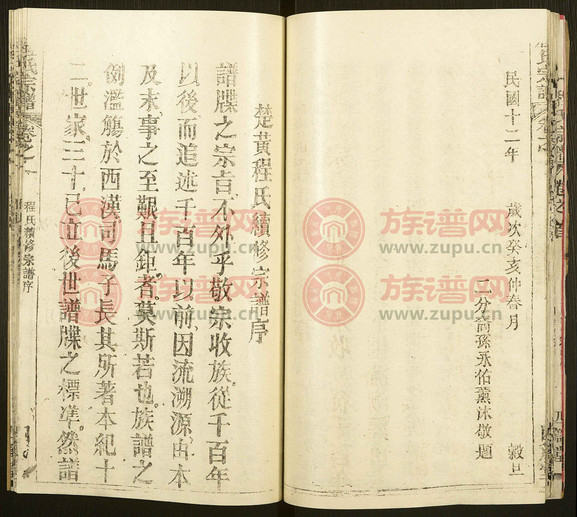 民國十二年 歲次癸亥仲春月 穀旦
二分裔孫永佑薰沐敬題
楚黃程氏續修宗譜序
譜牒之宗旨不外乎敬宗收族從千百年
以後而追述千百年以前因流溯源由本
及末事之至艱且鉅者莫斯若也族譜之
例濫觴於西漢司馬子長其所著本紀十
二世家三十已立後世譜牒之標準然譜
程氏續修宗譜序
族谱网
www.zupu.cn
族谱网
www.zupu.cn
族谱网
www.zupu.cn
族谱网
www.zupu.cn